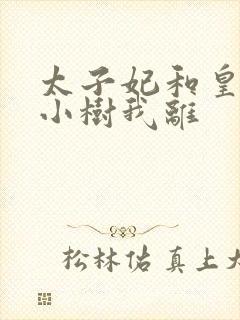 太子妃和皇
小樹我離
松林佑真上大